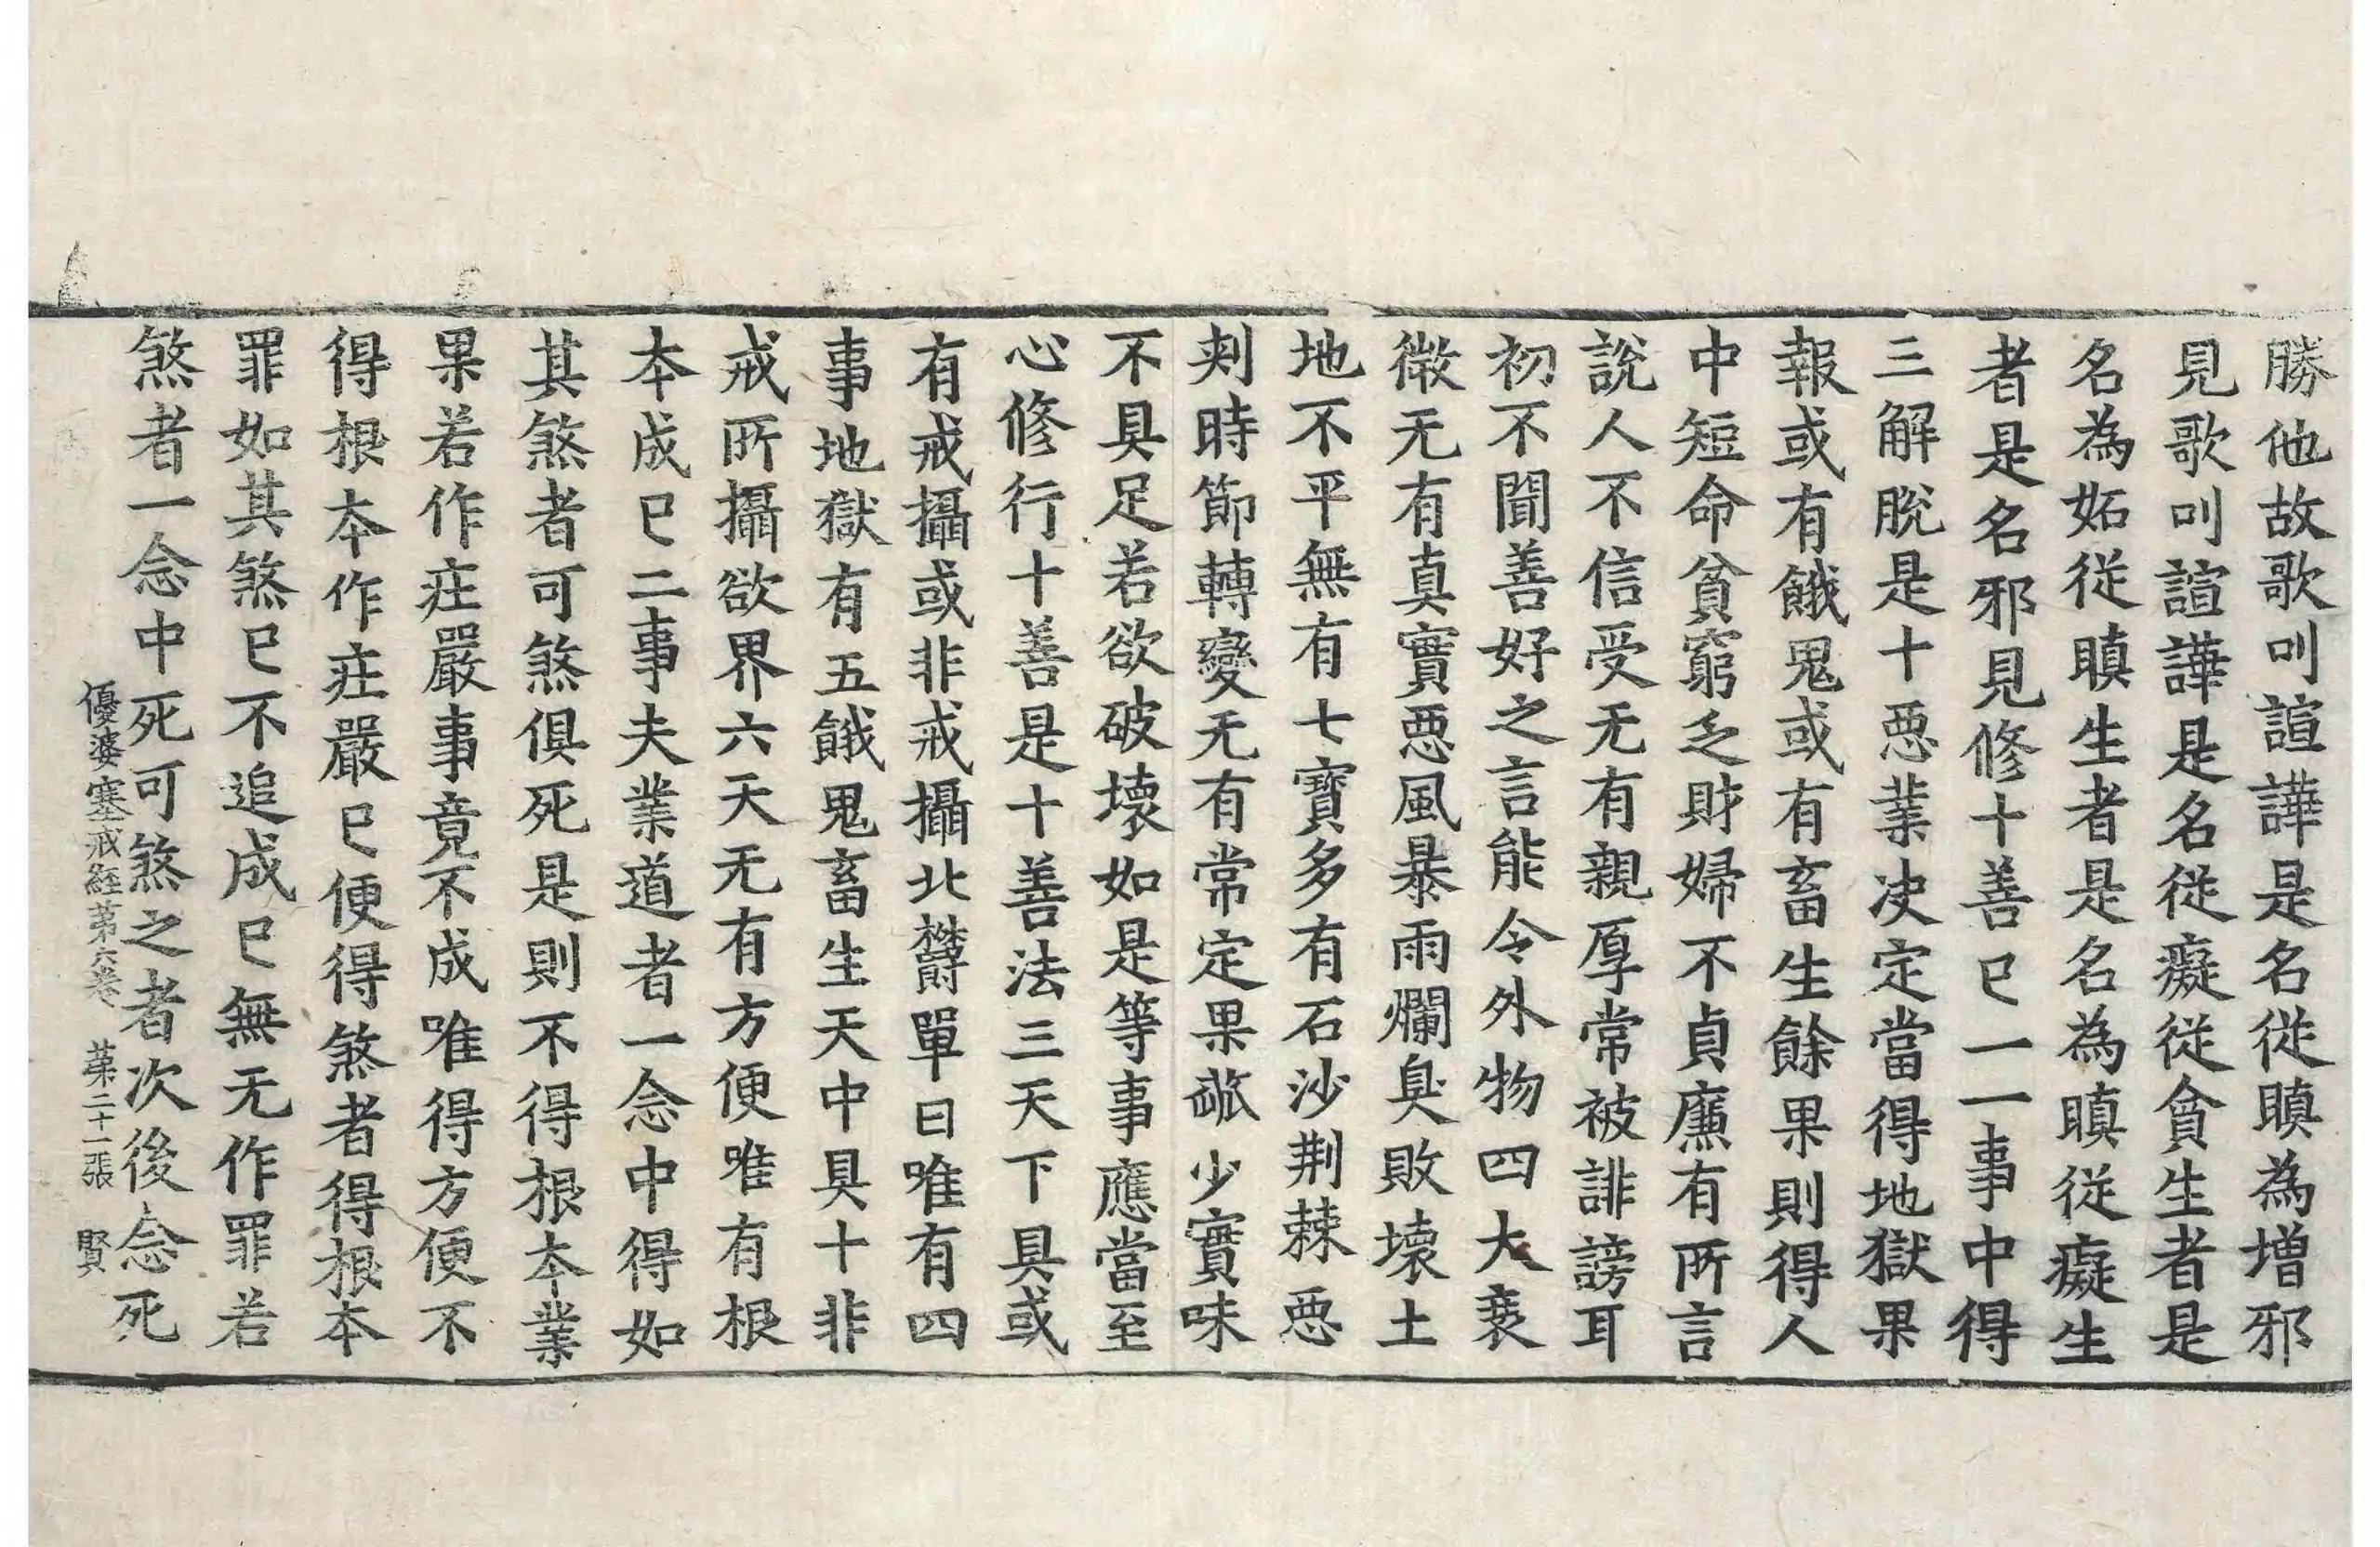 勝他故歌叫諠譁是名從瞋為增邪
見歌叫諠譁是名從癡從貪生者是
名為妬從瞋生者是名為瞋從癡生
者是名邪見修十善已一一事中得
三解脫是十惡業决定當得地獄果
報或有餓鬼或有畜生餘果則得人
中短命貧窮乏財婦不貞廉有所言
說人不信受无有親厚常被誹謗耳
初不聞善好之言能令外物四大衰
微无有真實惡風暴雨爛臭敗壞土
地不平無有七寶多有石沙荆棘惡
刺時節轉變无有常定果蓏少實味
不具足若欲破壞如是等事應當至
心修行十善是十善法三天下具或
有戒攝或非戒攝北欝單曰唯有四
事地獄有五餓鬼畜生天中具十非
戒所攝欲界六天无有方便唯有根
本成已二事夫業道者一念中得如
其煞者可煞俱死是則不得根本業
果若作庄嚴事竟不成唯得方便不
得根本作庄嚴已便得煞者得根本
罪如其煞已不追成已無无作罪若
煞者一念中死可煞之者次後念死
優婆塞戒経第六卷　第二十一張　賢